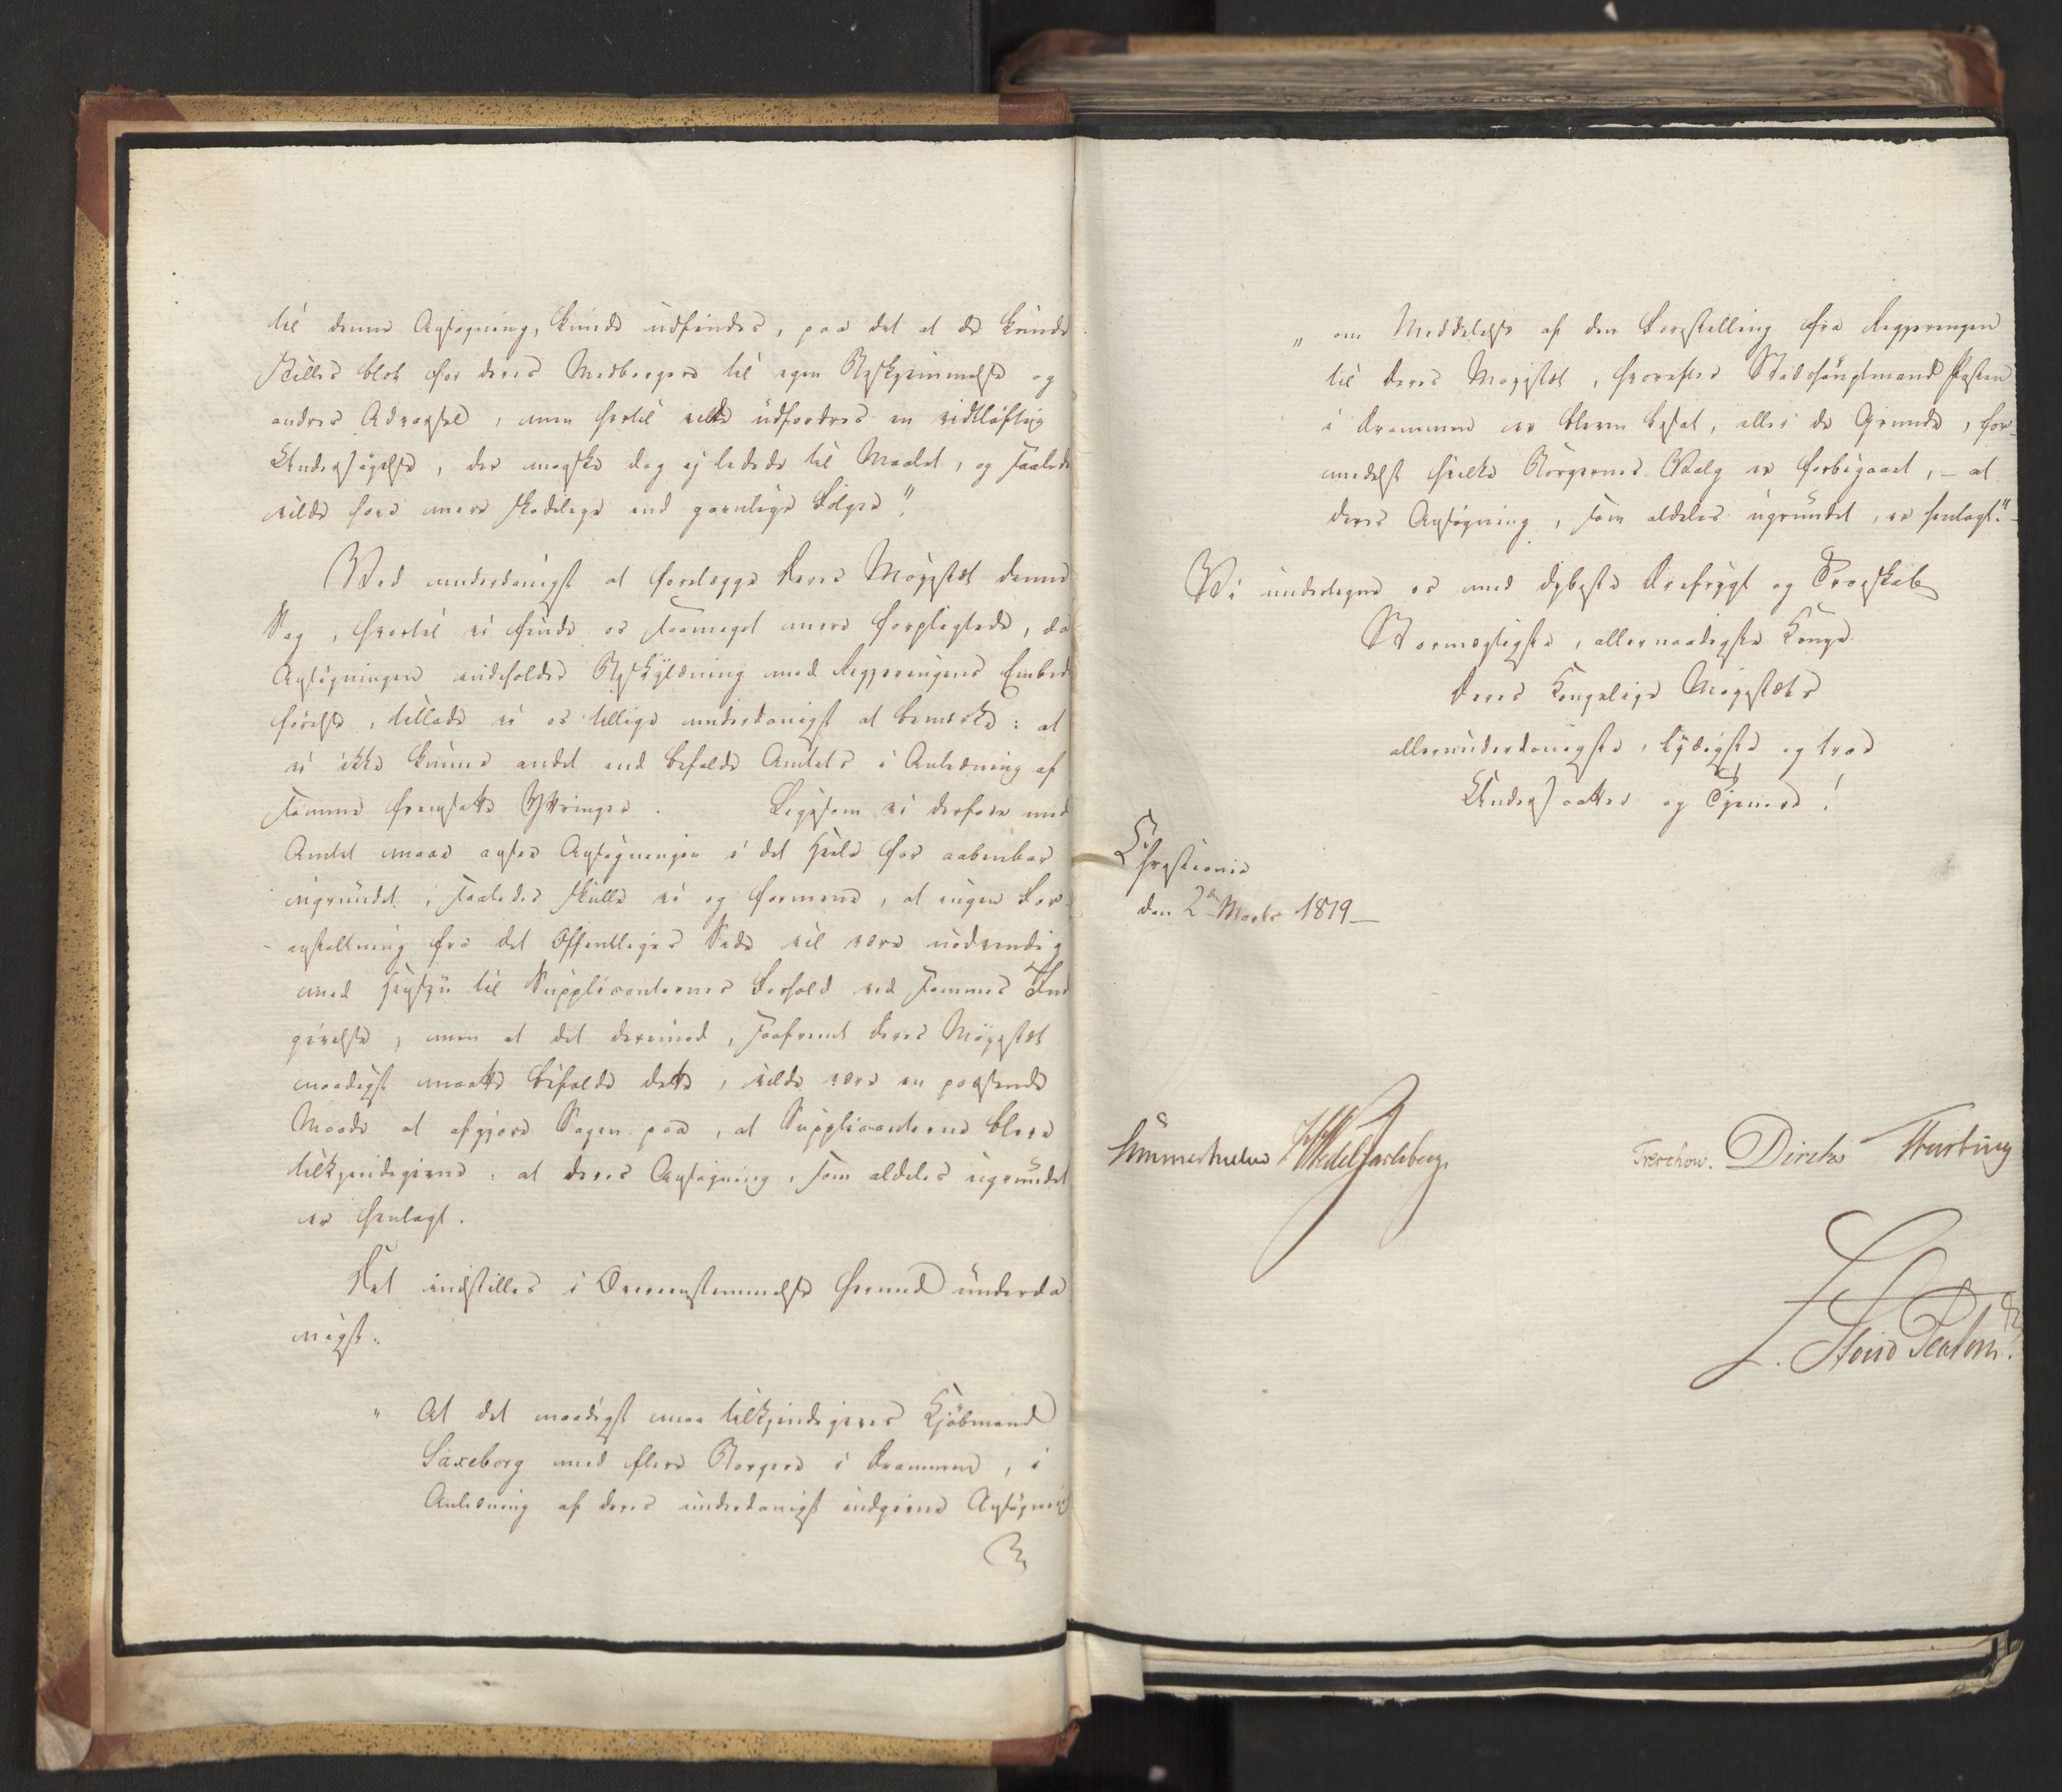 til denne Ansøgning, kunde udfindes, paa det at de kunde
stilles blot for deres Medborgere til egen Beskjæmmelse og
andres Advarsel, men hertil vilde udfordres en vidtløftig
Undersøgelse, der maaske dog ej ledede til Maalet, og saaledes
vilde have mere skadelige end gavnlige Følger."
Ved underdanigst at forelægge Deres Majestæt denne
Sag, hvortil vi finde os saameget mere forpligtede, da
Ansøgningen indeholder Beskyldning mod Regjeringens Embeds
førelse, tillade vi os tillige underdanigst at bemærke: at
vi ikke kunne andet end bifalde Amtets i Anledning af
samme fremsatte Yttringer. Ligesom vi derfore med
Amtet maae ansee Ansøgningen i det Hele for aabenbar
ugrundet, saaledes skulle vi og formene, at ingen For-
anstaltning fra det Offentliges Side vil være nødvendig
med Hensyn til Supplicanternes Forhold ved sammes Ind
givelse, men at det derimod, saafremt Deres Majestæt
naadigst maatte bifalde dette, vilde være en passende
Maade at afgjøre Sagen paa, at Supplicanterne bleve
tilkjendegivne: at deres Ansøgning, som aldeles ugrundet
er henlagt.
Det indstilles i Overeensstemmelse hermed underda
nigst:
" At det naadigst maa tilkjendegives Kjøbmand
Saxeborg med flere Borgere i Drammen, i
Anledning af deres underdanigst indgivne Ansøgning
" om Meddelelse af den Forestilling fra Regjeringen
til Deres Majestæt, hvorefter Stadshauptmand Posten
i Drammen er bleven besat, eller de Grunde, for-
medelst hvilke Borgernes Valg er forbigaaet, – at
deres Ansøgning, som aldeles ugrundet, er henlagt."
Vi undertegne os med dybeste Ærefrygt og Troskab
Stormægtigste, allernaadigste Konge
Deres Kongelige Majestæts
allerunderdanigste, lydigste og troe
Undersaatter og Tjenere!
Christiania
den 2den Marts 1819
Sommerhielm Wedel Jarlsberg. Treschow. Diriks Fasting